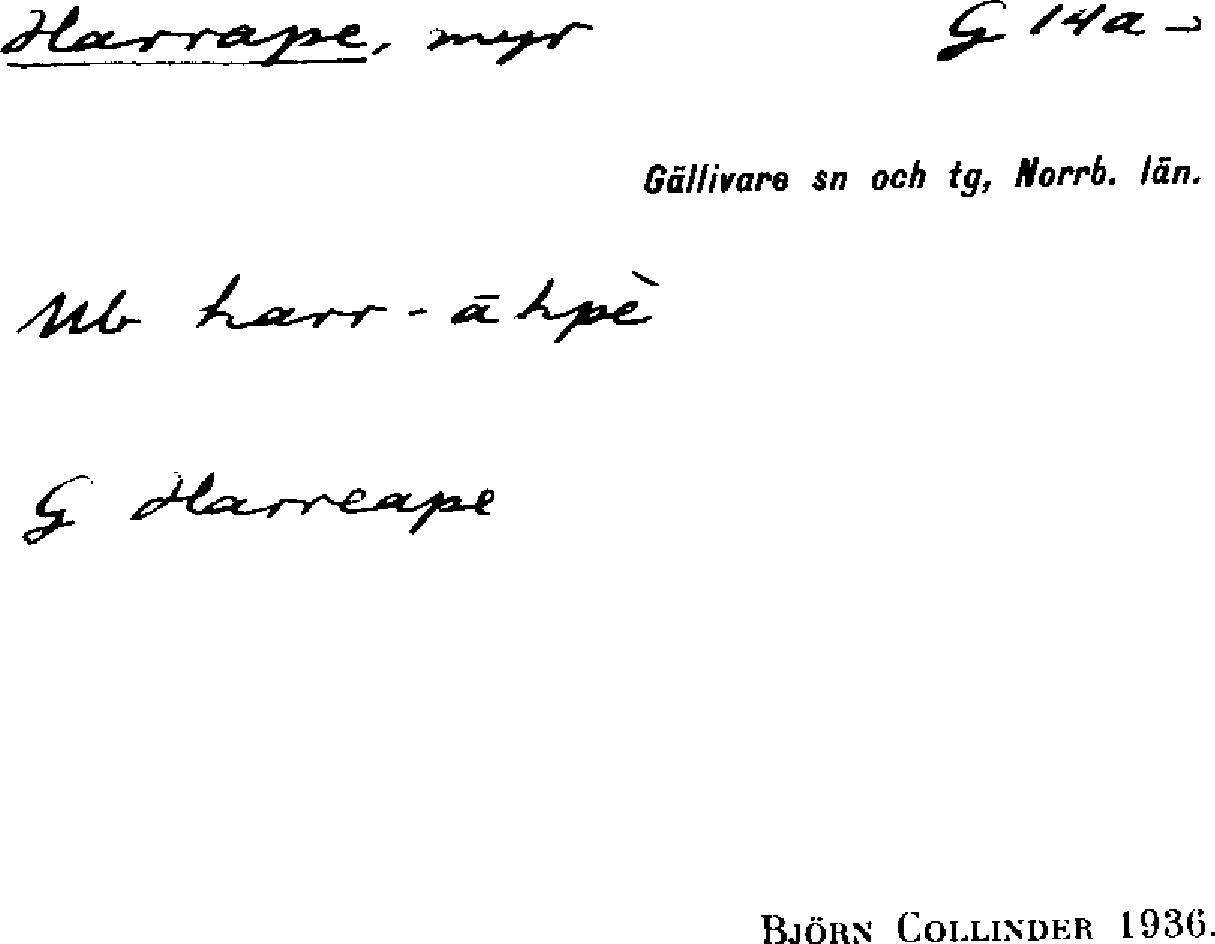 Harrape, myr G 14a
Gällivare sn och tg, Norrb. län.
Ub harr-āhpè
G Harreape
BJÖRN COLLINDER 1936.